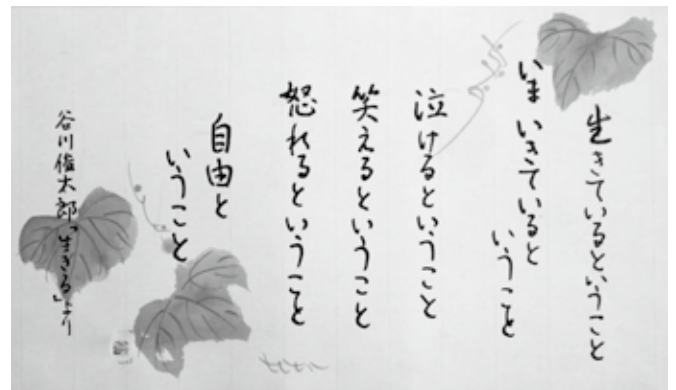 生きているということ
いま いきていると
いうこと
泣けるということ
笑えるということ
怒れるということ
自由と
いうこと
谷川俊太郎「生きる」より